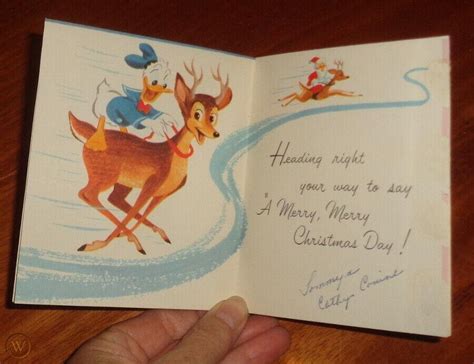 Heading right
your way to say
"A Merry, Merry
Christmas Day!
Cathy